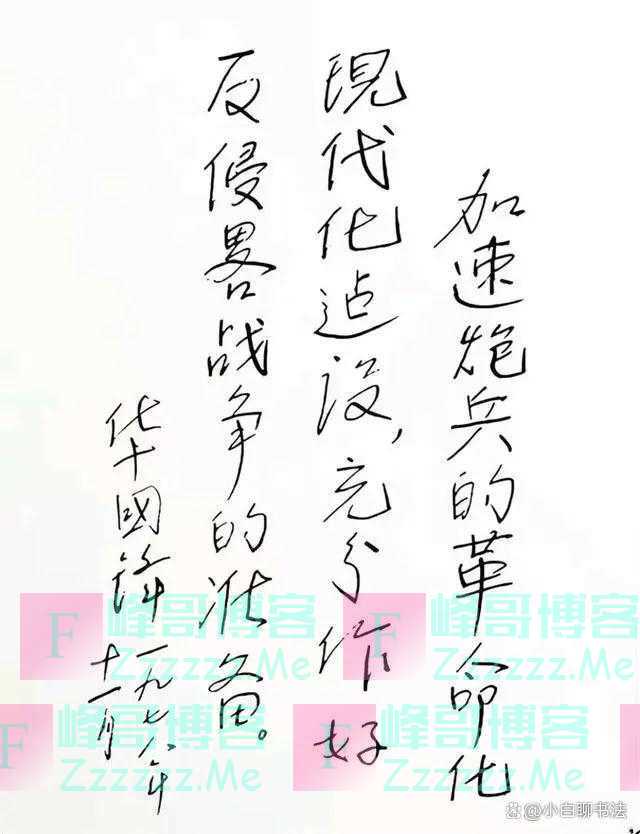 加速炮兵的革命化
現代化迠设，充分作好
反侵畧战争的准备。
华國锋 一九七八年
十一月
F 峰哥博客
Zzzzzz.Me
F 峰哥博客
Zzzzzz.Me
峰哥博客
Zzzzzz.Me
峰哥博客
Zzzzzz.Me
@小白聊书法